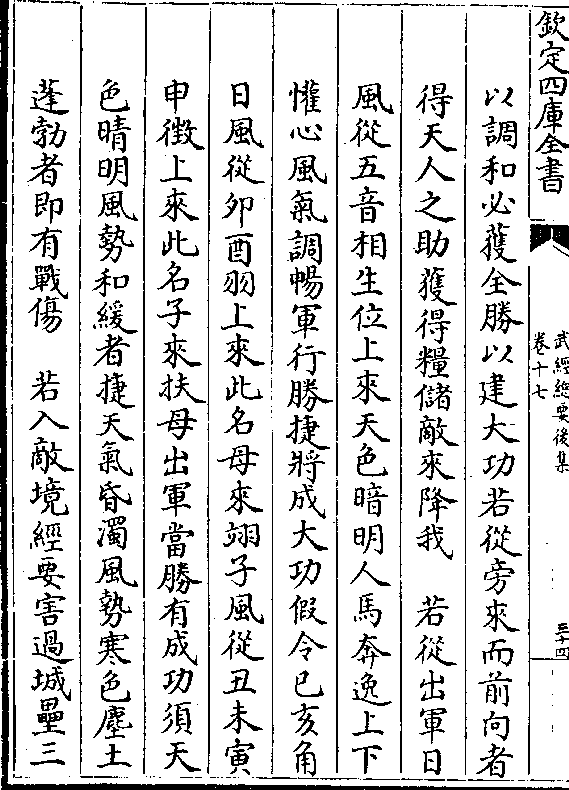 欽定四庫全書
武經總要後集
卷十七
三十四
以調和必獲全勝以建大功若從旁來而前向者
得天人之助獲得糧儲敵來降我　若從出軍日
風從五音相生位上來天色暗明人馬奔逸上下
懽心風氣調暢軍行勝捷將成大功假令巳亥角
日風從卯酉羽上來此名母來翊子風從丑未寅
申徴上來此名子來扶母出軍當勝有成功須天
色晴明風勢和緩者捷天氣昏濁風勢寒色塵土
蓬勃者即有戰傷　若入敵境經要害過城壘三